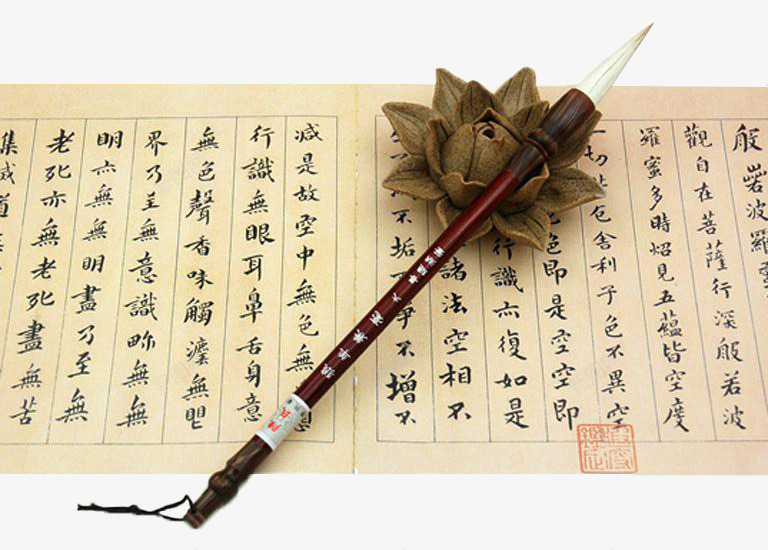 般若波羅
觀自在菩薩行深般若波
羅蜜多時炤見五蘊皆空度
一切苦厄舍利子色不異空
色即是空空即
行識亦復如是
諸法空相不
不垢不淨不增不
減是故空中無色無
行識無眼耳鼻舌身意
無色聲香味觸灋無眼
界乃至無意識畍無無
明亦無無明盡乃至無
老死亦無老死盡無苦
集滅道